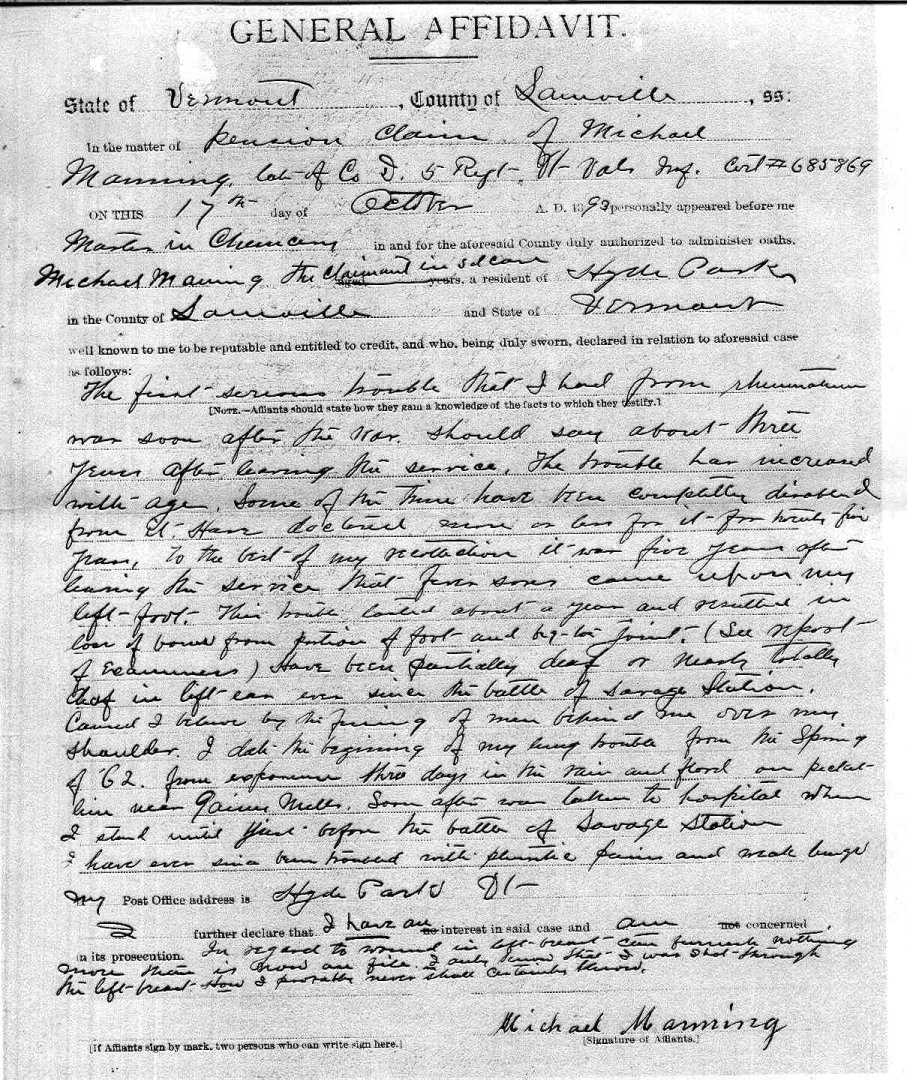 GENERAL AFFIDAVIT.
State of Vermont, County of Lamville, ss:
In the matter of Pension Claim of Michael
Manning, late of Co D. 5 Regt. Vt Vols Inf. Cert # 685869
ON THIS 17th day of October A. D. 1893 personally appeared before me
Master in Chancery in and for the aforesaid County duly authorized to administer oaths.
Michael Maning the Claimant in sd case aged years, a resident of Hyde Park
in the County of Lamville and State of Vermont
well known to me to be reputable and entitled to credit, and who, being duly sworn, declared in relation to aforesaid case
as follows:
The first serious trouble that I had from rheumatism
[NOTE.—Affiants should state how they gain a knowledge of the facts to which they testify.]
was soon after the War. should say about three
years after leaving the service. The trouble has increased
with age. Some of the time have been completely disabled
from it. Have doctored more or less for it for twenty five
years. To the best of my recollection it was five years after
leaving the service that fever sores came upon my
left foot. This trouble lasted about a year and resulted in
loss of bones from portion of foot and big-toe joint. (See report
of Examiners) Have been partially deaf or nearly totally
deaf in left ear ever since the battle of Savage Station.
Caused I believe by the firing of men behind me over my
shoulder. I date the begining of my lung trouble from the Spring
of '62. from exposure three days in the rain and flood on picket
line near Gaines Mills. Soon after was taken to hospital where
I staid until just before the battle of Savage Station
I have ever since been troubled with pleuritic pains and weak lungs
my Post Office address is Hyde Park Vt
I further declare that I have an no interest in said case and am not concerned
in its prosecution. In regard to wound in left breast can furnish nothing
more than is now on file. I only know that I was shot through
the left breast. How I probably never shall certainly know.
Michael Manning
[If Affiants sign by mark, two persons who can write sign here.] [Signature of Affiants.]